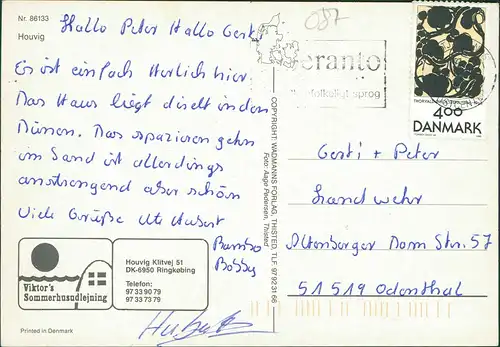 Nr. 86133
Houvig
Hallo Peter Hallo Gerti
Es ist einfach Herlich hier.
Das Haus liegt direkt in den
Dünen. Das spazieren gehn
im Sand ist allerdings
anstrengend aber schön
Viele Grüße Ute Hubert
Bambo
Bobby
Viktor's
Sommerhusudlejning
Houvig Klitvej 51
DK-6950 Ringkøbing
Telefon:
97 33 90 79
97 33 73 79
Printed in Denmark
COPYRIGHT WADMANNS FORLAG, THISTED, TLF. 97 92 31 66
Foto: Aage Pedersen, Thisted
087
eranto
folkeligt sprog
400
DANMARK
Gerti + Peter
Landwehr
Altenberger Dom Str. 57
51519 Odenthal